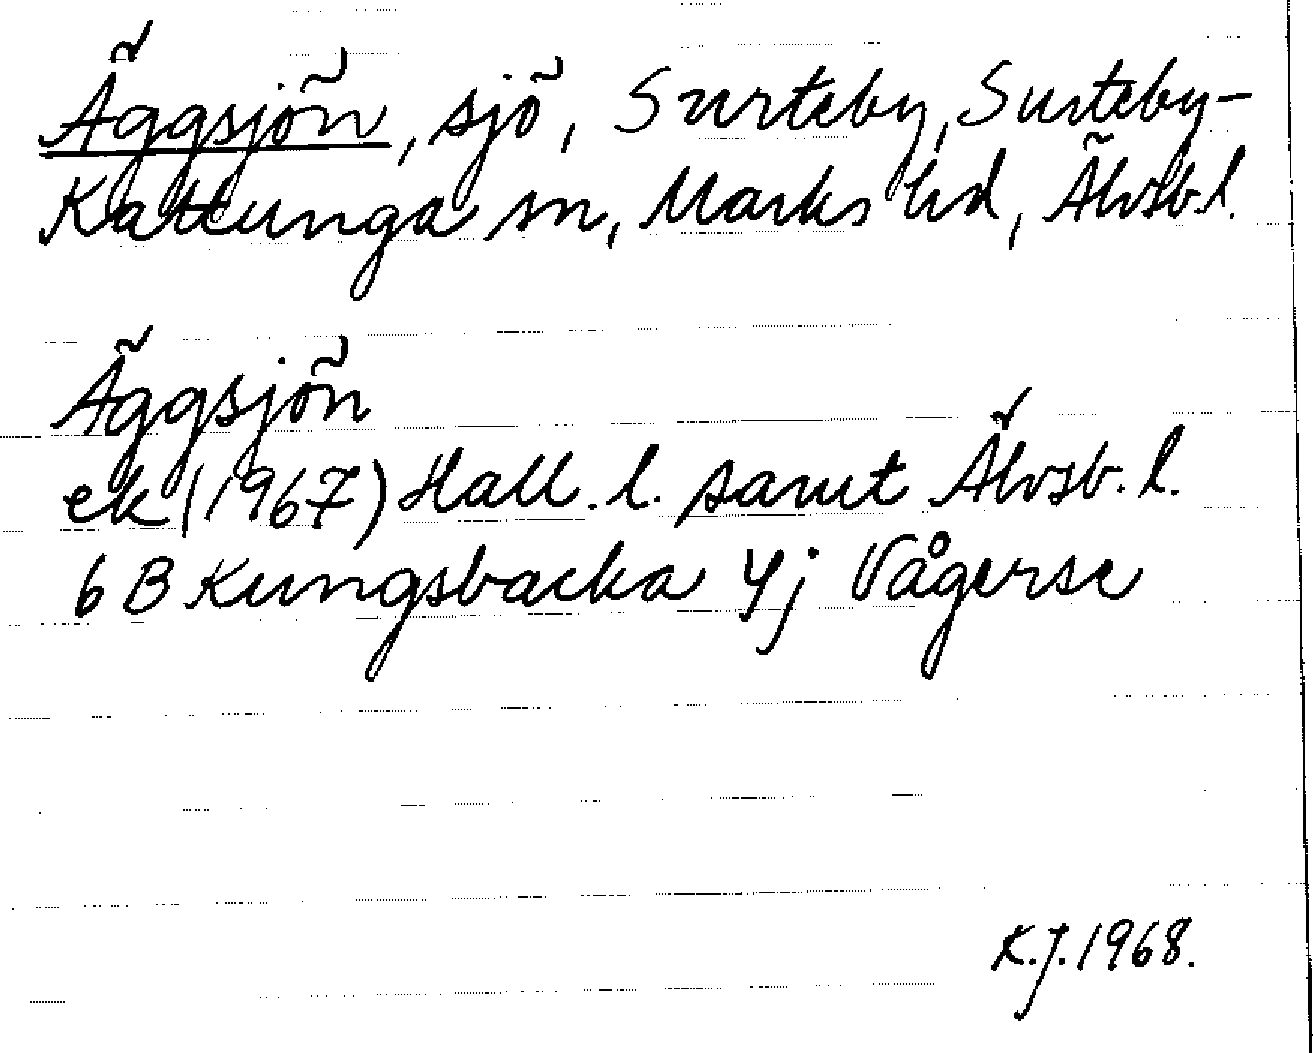 Äggsjön, sjö, Surteby, Surteby-
Kattunga sn, Marks hd, Älvsb.l.
Äggsjön
ek (1967) Hall. l. samt Älvsb. l.
6 B Kungsbacka 4j Vågerse
K.J. 1968.